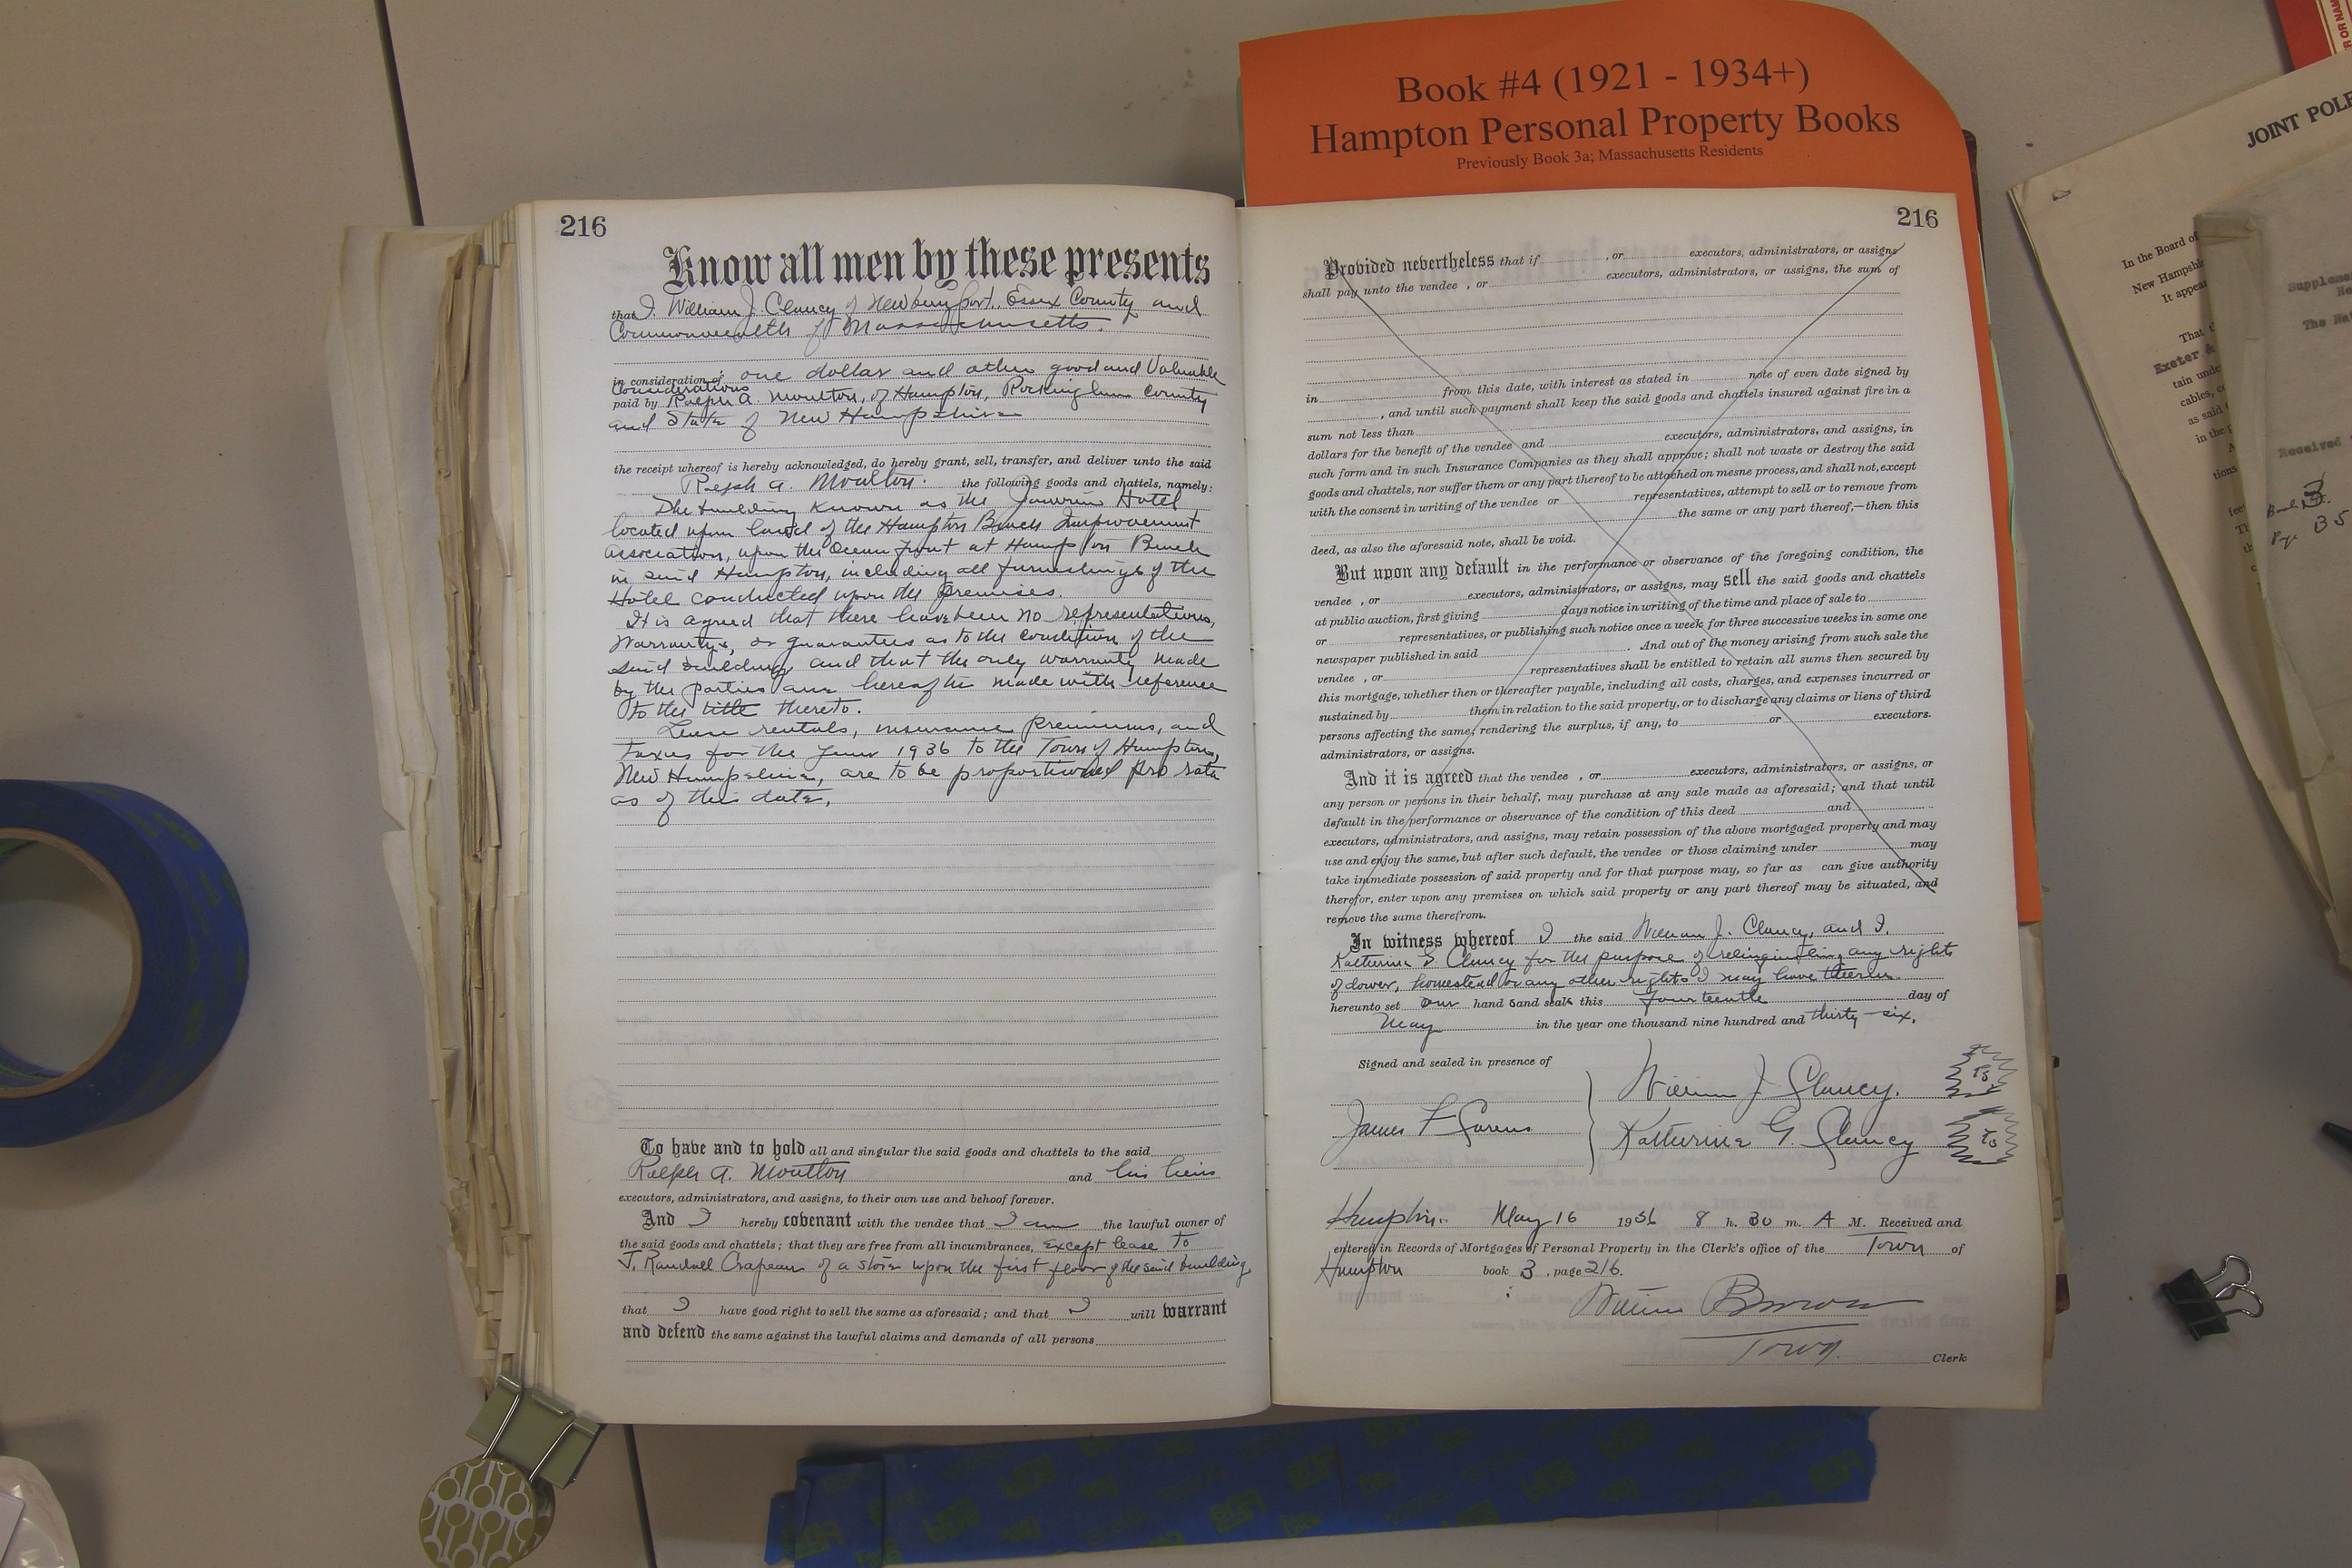 Book #4 (1921 - 1934+)
Hampton Personal Property Books
Previously Book 3a; Massachusetts Residents
216
Know all men by these presents
that I, William J. Clancy of Newburyport, Essex County and
Commonwealth of Massachusetts.
in consideration of one dollar and other good and Valuable
Considerations
paid by Ralph A. Moulton, of Hampton, Rockingham County
and State of New Hampshire
the receipt whereof is hereby acknowledged, do hereby grant, sell, transfer, and deliver unto the said
Ralph A. Moulton. the following goods and chattels, namely:
The building Known as the Janvrin Hotel
located upon land of the Hampton Beach Improvement
Association, upon the Ocean Front at Hampton Beach
in said Hampton, including all furnishings of the
Hotel conducted upon the premises.
It is agreed that there have been no representations,
Warrantys, or guarantees as to the condition of the
said building and that the only warranty made
by the parties are hereafter made with reference
to the title thereto.
Lease rentals, insurance premiums, and
taxes for the year 1936 to the Town of Hampton,
New Hampshire, are to be proportioned pro rata
as of this date.
To have and to hold all and singular the said goods and chattels to the said
Ralph A. Moulton and his heirs
executors, administrators, and assigns, to their own use and behoof forever.
And I hereby covenant with the vendee that I am the lawful owner of
the said goods and chattels; that they are free from all incumbrances, except lease to
J. Randall of a store upon the first floor of the said building
that I have good right to sell the same as aforesaid; and that I will warrant
and defend the same against the lawful claims and demands of all persons
216
Provided nevertheless that if , or executors, administrators, or assigns
shall pay unto the vendee , or executors, administrators, or assigns, the sum of
in from this date, with interest as stated in note of even date signed by
, and until such payment shall keep the said goods and chattels insured against fire in a
sum not less than
dollars for the benefit of the vendee and executors, administrators, and assigns, in
such form and in such Insurance Companies as they shall approve; shall not waste or destroy the said
goods and chattels, nor suffer them or any part thereof to be attached on mesne process, and shall not, except
with the consent in writing of the vendee or representatives, attempt to sell or to remove from
the same or any part thereof,—then this
deed, as also the aforesaid note, shall be void.
But upon any default in the performance or observance of the foregoing condition, the
vendee , or executors, administrators, or assigns, may sell the said goods and chattels
at public auction, first giving days notice in writing of the time and place of sale to
or representatives, or publishing such notice once a week for three successive weeks in some one
newspaper published in said . And out of the money arising from such sale the
vendee , or representatives shall be entitled to retain all sums then secured by
this mortgage, whether then or thereafter payable, including all costs, charges, and expenses incurred or
sustained by them in relation to the said property, or to discharge any claims or liens of third
persons affecting the same, rendering the surplus, if any, to or executors.
administrators, or assigns.
And it is agreed that the vendee , or executors, administrators, or assigns, or
any person or persons in their behalf, may purchase at any sale made as aforesaid; and that until
default in the performance or observance of the condition of this deed and
executors, administrators, and assigns, may retain possession of the above mortgaged property and may
use and enjoy the same, but after such default, the vendee or those claiming under may
take immediate possession of said property and for that purpose may, so far as can give authority
therefor, enter upon any premises on which said property or any part thereof may be situated, and
remove the same therefrom.
In witness whereof I the said William J. Clancy, and I,
Katherine G Clancy for the purpose of relinquishing any rights
of dower, homestead or any other rights I may have therein
hereunto set our hand s and seals this fourteenth day of
May in the year one thousand nine hundred and thirty-six.
Signed and sealed in presence of
William J. Clancy.
James F.
Katherine G. Clancy
Hampton. May 16 1936 8 h. 30 m. A M. Received and
entered in Records of Mortgages of Personal Property in the Clerk's office of the Town of
Hampton book 3, page 216.
William Brown
Town Clerk
JOINT POLE
In the Board of
New Hampshi
It appea
That
Exeter &
tain unde
cables, c
as said
in the p
tions
Received
Book 3.
Page